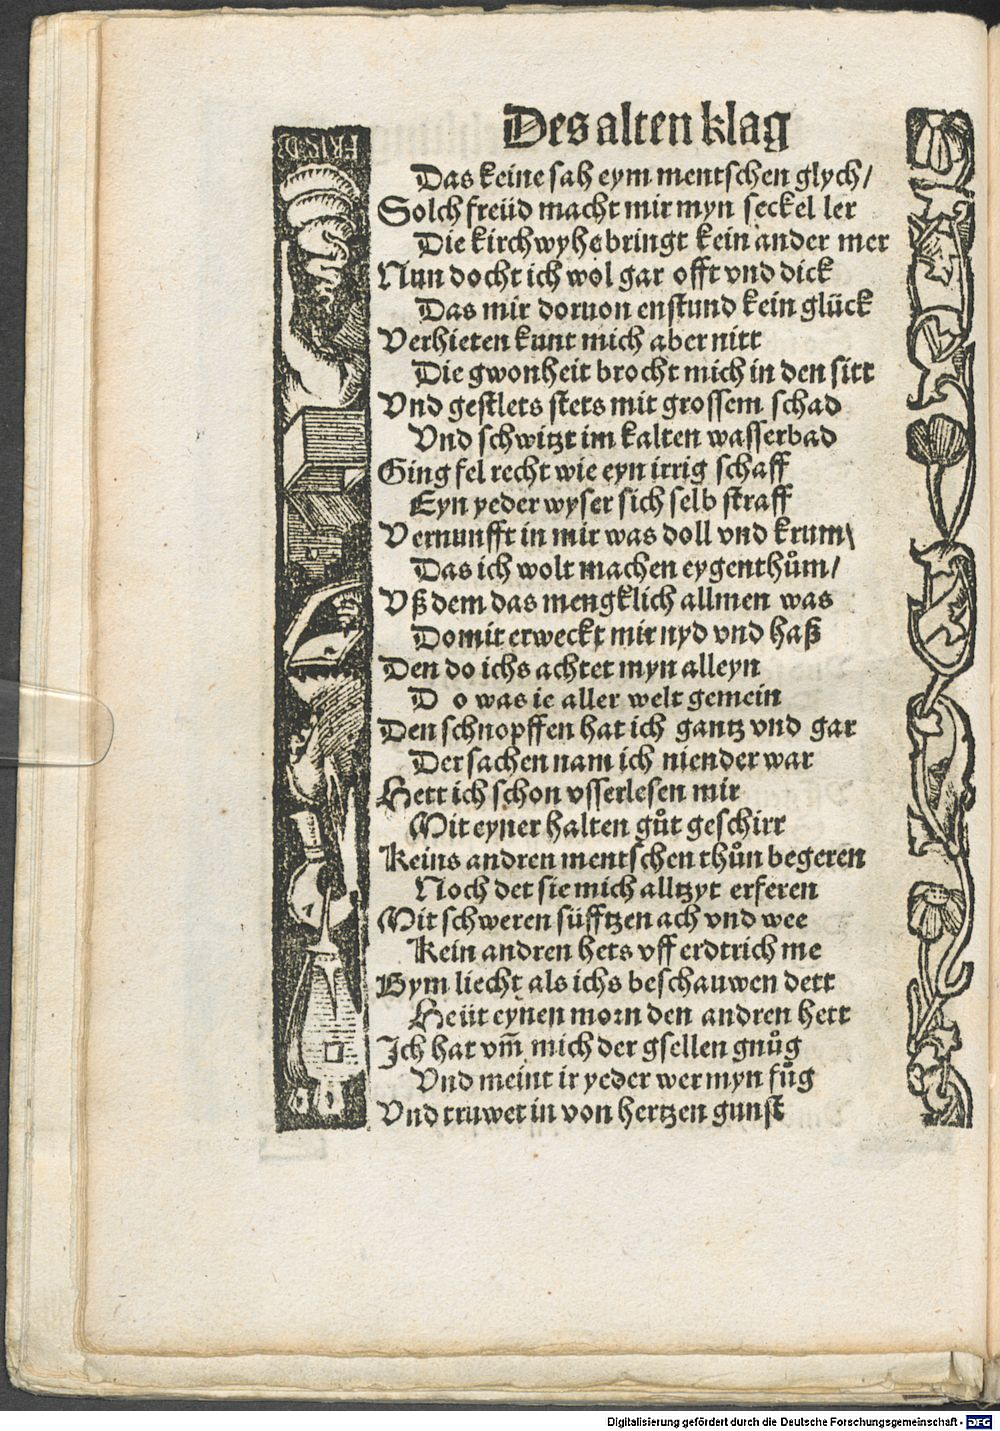 Des alten klag
Das keine sah eym mentschen glych/
Solch freüd macht mir myn seckel ler
Die kirchwyhe bringt kein ander mer
Nun docht ich wol gar offt vnd dick
Das mir doruon enstund kein glück
Verhieten kunt mich aber nitt
Die gwonheit brocht mich in den sitt
Vnd gestlets stets mit grossem schad
Vnd schwitzt im kalten wasserbad
Ging fel recht wie eyn irrig schaff
Eyn yeder wyser sich selb straff
Vernunfft in mir was doll vnd krum/
Das ich wolt machen eygenthům/
Vß dem das mengklich allmen was
Domit erweckt mir nyd vnd haß
Den do ichs achtet myn alleyn
Do was ie aller welt gemein
Den schnopffen hat ich gantz vnd gar
Der sachen nam ich niender war
Hett ich schon vsserlesen mir
Mit eyner halten gůt geschirr
Keins andren mentschen thůn begeren
Noch det sie mich alltzyt erferen
Mit schweren süfftzen ach vnd wee
Kein andren hets vff erdtrich me
Bym liecht als ichs beschauwen dett
Heüt eynen morn den andren hett
Ich hat vm̄ mich der gsellen gnůg
Vnd meint ir yeder wer myn fůg
Vnd truwet in von hertzen gunst
Digitalisierung gefördert durch die Deutsche Forschungsgemeinschaft - DFG